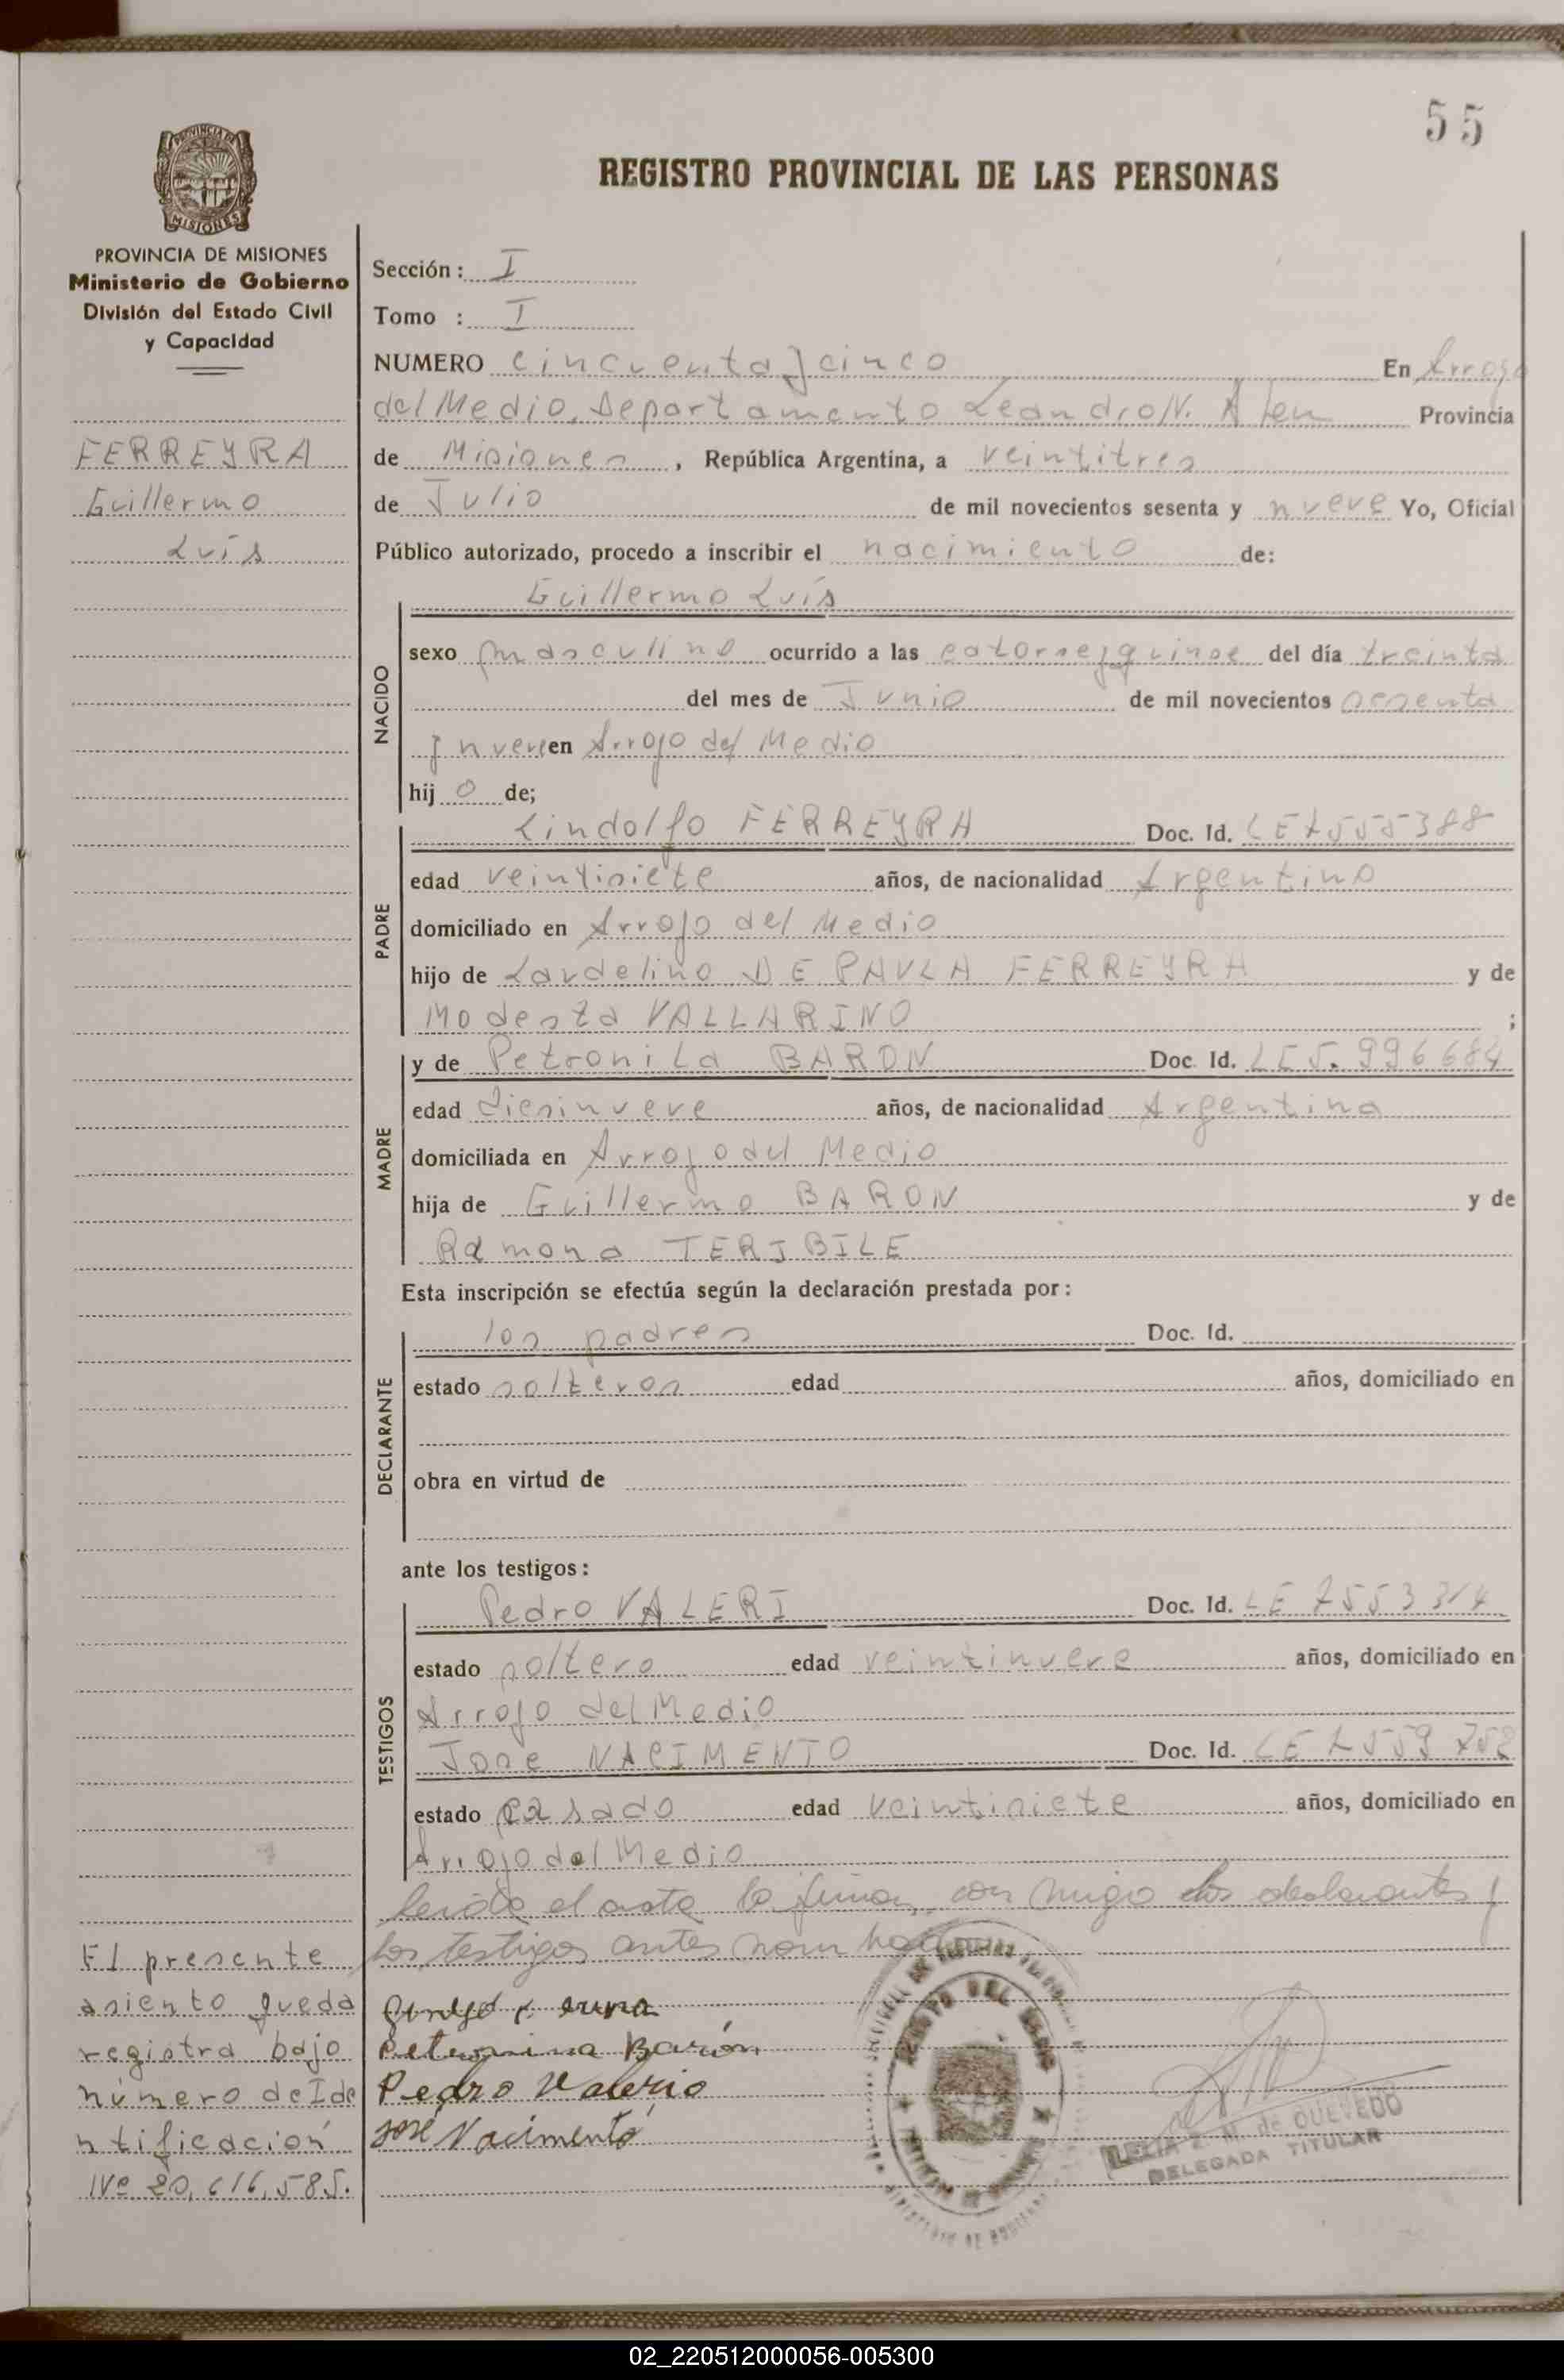 55
REGISTRO PROVINCIAL DE LAS PERSONAS
PROVINCIA DE
MISIONES
PROVINCIA DE MISIONES
Ministerio de Gobierno
División del Estado Civil
y Capacidad
FERREYRA
Guillermo
Luis
Sección: I
Tomo : I
NUMERO cincuenta y cinco En Arroyo
del Medio, Departamento Leandro N. Alem Provincia
de Misiones, República Argentina, a veintitres
de Julio de mil novecientos sesenta y nueve Yo, Oficial
Público autorizado, procedo a inscribir el nacimiento de:
Guillermo Luis
NACIDO
sexo masculino ocurrido a las catorse y quinse del día treinta
del mes de Junio de mil novecientos sesenta
y nueve en Arroyo del Medio
hij o de;
PADRE
Lindolfo FERREYRA Doc. Id. LE 7555388
edad veintisiete años, de nacionalidad Argentino
domiciliado en Arroyo del Medio
hijo de Laudelino DE PAULA FERREYRA y de
Modesta VALLARINO ;
MADRE
y de Petronila BARON Doc. Id. LC 5.996684
edad diesinueve años, de nacionalidad Argentina
domiciliada en Arroyo del Medio
hija de Guillermo BARON y de
Ramona TERIBILE
Esta inscripción se efectúa según la declaración prestada por:
DECLARANTE
los padres Doc. Id.
estado solteros edad años, domiciliado en
obra en virtud de
ante los testigos:
TESTIGOS
Pedro VALERI Doc. Id. LE 7553314
estado soltero edad veintinueve años, domiciliado en
Arroyo del Medio
Jose NACIMENTO Doc. Id. LE 7559752
estado casado edad veintisiete años, domiciliado en
Arroyo del Medio
leida el acta la firman, con migo los declarantes y
los testigos antes nombrados
Petronina Barón
Pedro Valerio
José Nacimento
El presente
asiento queda
registra bajo
número de Ide
ntificación
Nº 20.616.585.
DE QUEVEDO
DELEGADA TITULAR
02_220512000056-005300